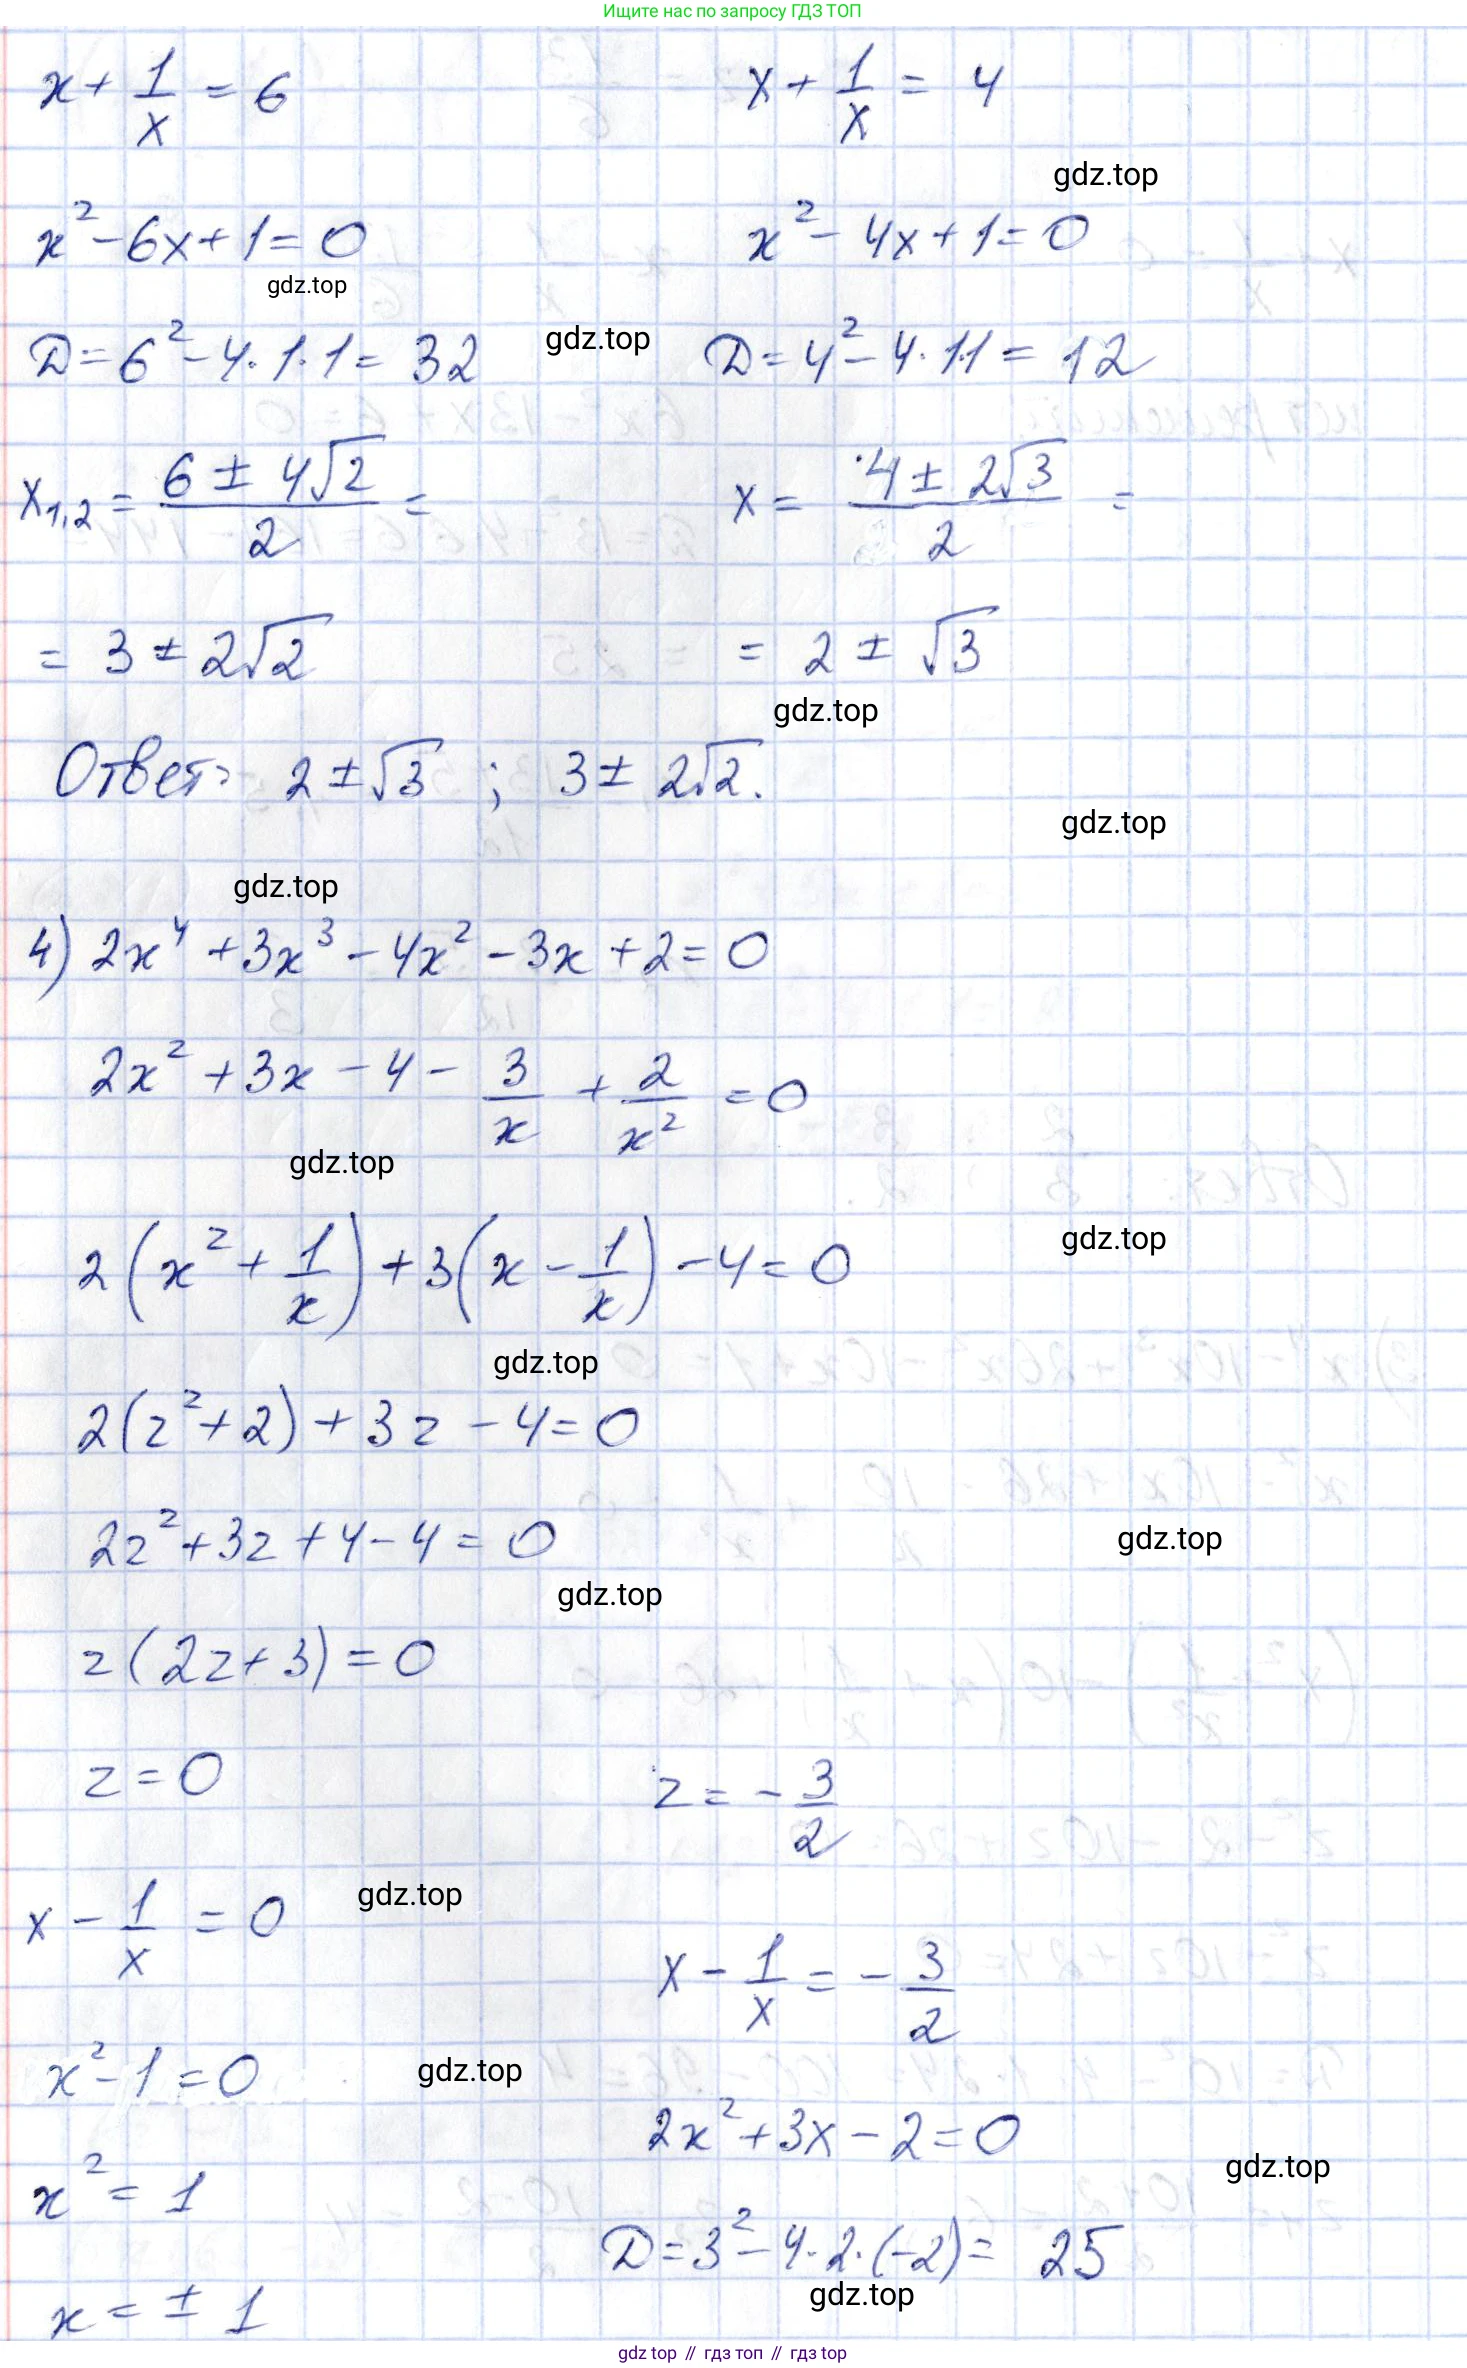 Ищите нас по запросу ГДЗ ТОП
x + 1/x = 6
x + 1/x = 4
gdz.top
x² - 6x + 1 = 0
x² - 4x + 1 = 0
gdz.top
D = 6² - 4·1·1 = 32
gdz.top
D = 4² - 4·1·1 = 12
x₁,₂ = (6 ± 4√2)/2 =
x = (4 ± 2√3)/2 =
= 3 ± 2√2
= 2 ± √3
gdz.top
Ответ: 2 ± √3 ; 3 ± 2√2.
gdz.top
gdz.top
4) 2x⁴ + 3x³ - 4x² - 3x + 2 = 0
2x² + 3x - 4 - 3/x + 2/x² = 0
gdz.top
gdz.top
2(x² + 1/x) + 3(x - 1/x) - 4 = 0
gdz.top
2(z² + 2) + 3z - 4 = 0
2z² + 3z + 4 - 4 = 0
gdz.top
gdz.top
z(2z + 3) = 0
z = 0
z = - 3/2
x - 1/x = 0
gdz.top
x - 1/x = - 3/2
x² - 1 = 0
gdz.top
2x² + 3x - 2 = 0
gdz.top
x² = 1
D = 3² - 4·2·(-2) = 25
gdz.top
x = ± 1
gdz.top // гдз топ // гдз top